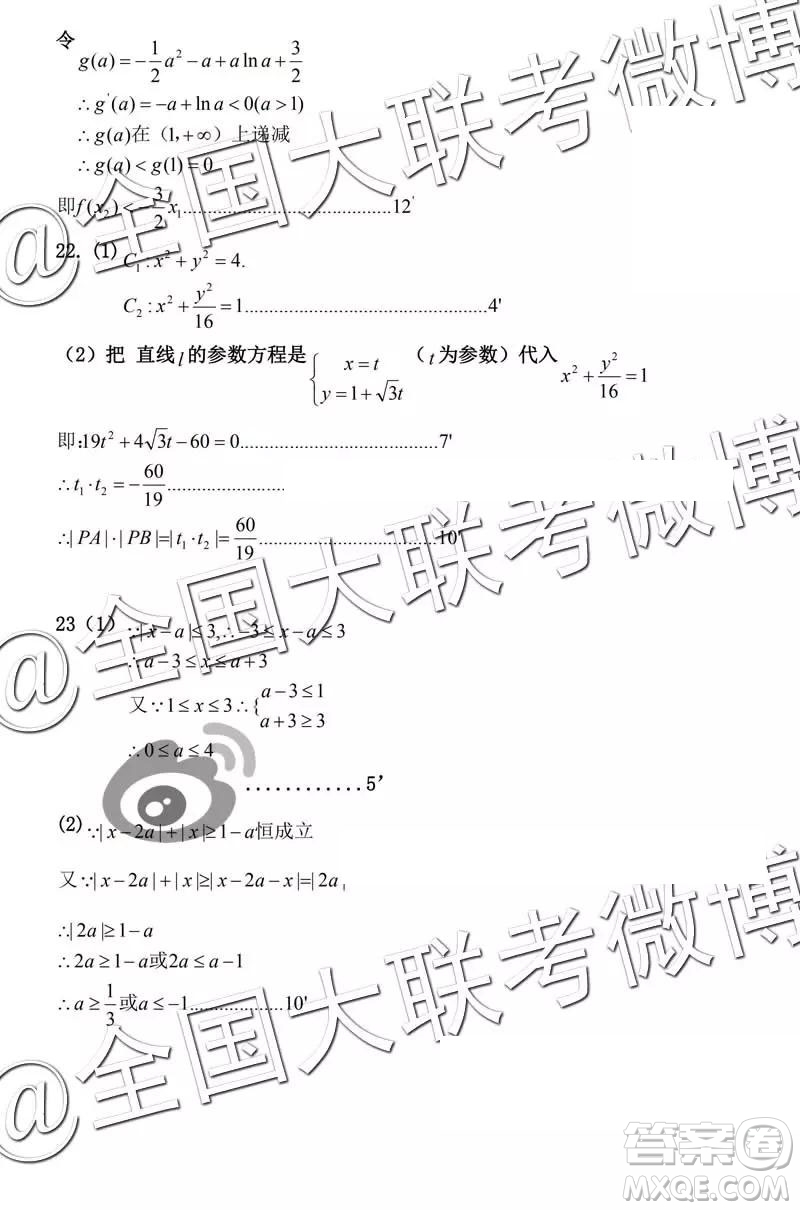 令
g(a)=-\frac{1}{2}a²-a+a ln a+\frac{3}{2}
∴g'(a)=-a+ln a<0(a>1)
∴g(a)在（1，+∞）上递减
∴g(a)<g(1)=0
即f(x₂)<-\frac{3}{2}x₁...........................................12'
22. (1) C₁:x²+y²=4.
C₂:x²+\frac{y²}{16}=1..................................................4'
（2）把 直线l的参数方程是 { x=t y=1+√3t （t为参数）代入 x²+\frac{y²}{16}=1
即:19t²+4√3t-60=0.........................................7'
∴t₁·t₂=-\frac{60}{19}........................
∴|PA|·|PB|=|t₁·t₂|=\frac{60}{19}.....................................10'
23（1）∵|x-a|≤3,∴-3≤x-a≤3
∴a-3≤x≤a+3
又∵1≤x≤3∴{ a-3≤1 a+3≥3
∴0≤a≤4
............5’
(2) ∵|x-2a|+|x|≥1-a恒成立
又∵|x-2a|+|x|≥|x-2a-x|=|2a|
∴|2a|≥1-a
∴2a≥1-a或2a≤a-1
∴a≥\frac{1}{3}或a≤-1....................10'
@全国大联考微博
@全国大联考微博
@全国大联考微博
答案卷
MXQE.COM